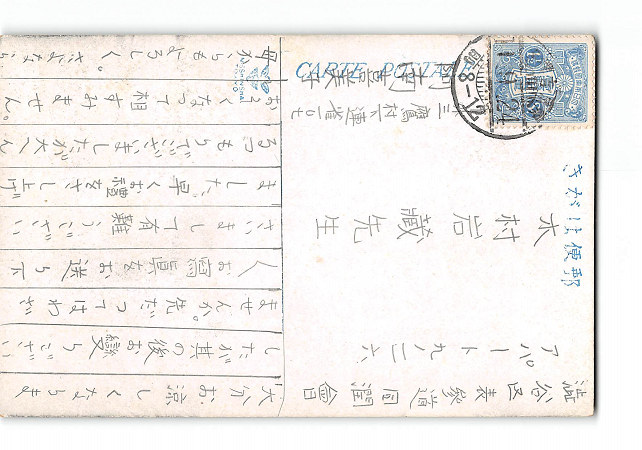 CARTE POSTALE
きがは便郵
澁谷區表參道同潤會
アパート九ノ二六
木村岩藏先生
市外三鷹村下連雀一〇七
大分お涼しくなりま
したが其の後お變りござい
ませんか。先だつてはわざ
くお寫眞をお送り下
さいまして有難うござい
ました。早くお禮をさし上げ
るつもりでございましたが大へん
おそくなつて相すみません。
母からもよろしく。さよなら